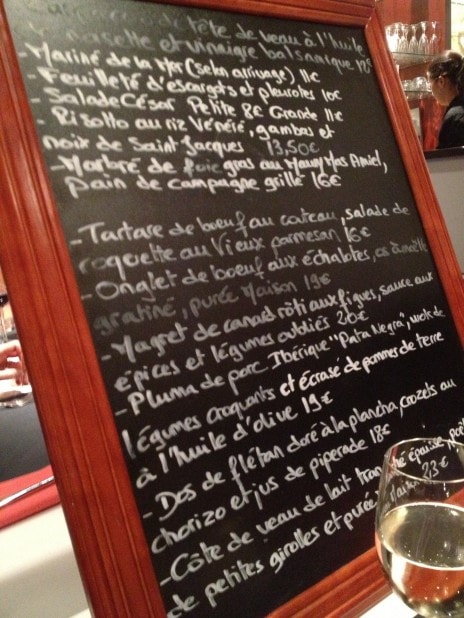 de tête de veau à l'huile
noisette et vinaigre balsamique
-Mariné de la Mer (selon arrivage) 11€
-Feuilleté d'escargots et pleurotes 10€
-Salade César Petite 8€ Grande 11€
Rizotto au riz Vénéré, gambas et
noix de Saint Jacques 13,50€
-Marbré de foie gras au Maury Mas Amiel,
pain de campagne grillé 16€
-Tartare de boeuf au couteau, salade de
roquette au Vieux parmesan 16€
-Onglet de boeuf aux échalotes, os à moëlle
gratiné, purée Maison 19€
-Magret de canard rôti aux figues, sauce aux
épices et légumes oubliés 20€
-Pluma de porc Ibérique "Pata Negra", wok de
légumes croquants et écrasé de pommes de terre
à l'huile d'olive 19€
-Dos de flétan doré à la plancha, crozets au
chorizo et jus de piperade 18€
-Côte de veau de lait tranche épaisse, poêlée
de petites girolles et purée Maison 23€